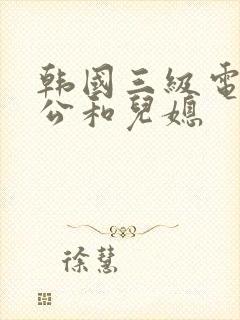 韩國三級電
公和兒媳
徐慧